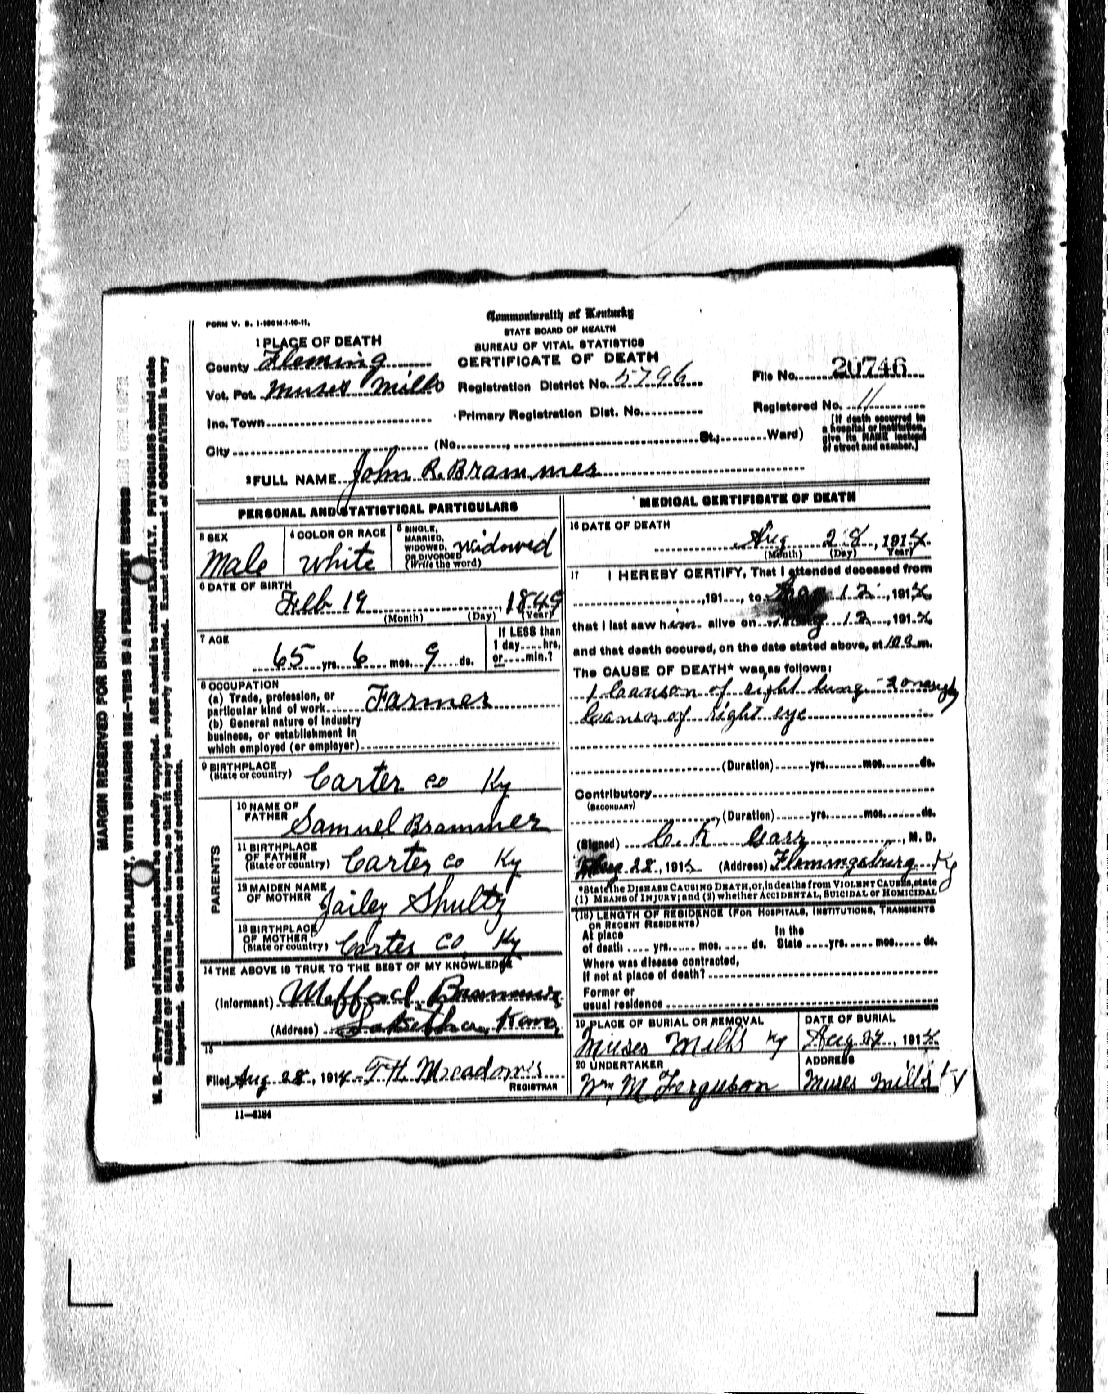 FORM V. S. 1-150M-1-10-11.
Commonwealth of Kentucky
STATE BOARD OF HEALTH
BUREAU OF VITAL STATISTICS
CERTIFICATE OF DEATH
1 PLACE OF DEATH
County Fleming
Vot. Pct. Muses Mills
Inc. Town
City
Registration District No. 5796
Primary Registration Dist. No.
(No. St.; Ward)
File No. 20746
Registered No. 11
[If death occurred in
a hospital or institution,
give its NAME instead
of street and number.]
2 FULL NAME John R. Brammer
PERSONAL AND STATISTICAL PARTICULARS
3 SEX
Male
4 COLOR OR RACE
White
5 SINGLE,
MARRIED,
WIDOWED,
OR DIVORCED
(Write the word)
Widowed
6 DATE OF BIRTH
Feb 19, 1849
(Month) (Day) (Year)
7 AGE
65 yrs. 6 mos. 9 ds.
If LESS than
1 day....hrs.
or....min.?
8 OCCUPATION
(a) Trade, profession, or
particular kind of work Farmer
(b) General nature of industry
business, or establishment in
which employed (or employer)
9 BIRTHPLACE
(State or country) Carter Co Ky
PARENTS
10 NAME OF
FATHER Samuel Brammer
11 BIRTHPLACE
OF FATHER
(State or country) Carter Co Ky
12 MAIDEN NAME
OF MOTHER Jailey Shultz
13 BIRTHPLACE
OF MOTHER
(State or country) Carter Co. Ky
14 THE ABOVE IS TRUE TO THE BEST OF MY KNOWLEDGE
(Informant) Mefford Brammer
(Address) Kans.
15
Filed Aug 28, 1914 T. H. Meadows
REGISTRAR
11-5184
MEDICAL CERTIFICATE OF DEATH
16 DATE OF DEATH
Aug 28, 1914
(Month) (Day) (Year)
17 I HEREBY CERTIFY, That I attended deceased from
, 191...., to 12, 1914,
that I last saw him alive on 12, 1914
and that death occured, on the date stated above, at m.
The CAUSE OF DEATH* was as follows:
of right lung
of right eye
(Duration) yrs. mos. ds.
Contributory
(SECONDARY)
(Duration) yrs. mos. ds.
(Signed) C. R. Garr, M. D.
Aug 28, 191 (Address) Flemingsburg Ky
*State the DISEASE CAUSING DEATH, or, in deaths from VIOLENT CAUSES, state
(1) MEANS OF INJURY; and (2) whether ACCIDENTAL, SUICIDAL or HOMICIDAL
(18) LENGTH OF RESIDENCE (FOR HOSPITALS, INSTITUTIONS, TRANSIENTS
OR RECENT RESIDENTS)
At place In the
of death .... yrs. .... mos. .... ds. State .... yrs. .... mos. .... ds.
Where was disease contracted,
If not at place of death?
Former or
usual residence
19 PLACE OF BURIAL OR REMOVAL
Muses Mills Ky
DATE OF BURIAL
Aug 1914
20 UNDERTAKER
Wm. M. Ferguson
ADDRESS
Muses Mills Ky
MARGIN RESERVED FOR BINDING
WRITE PLAINLY, WITH UNFADING INK—THIS IS A PERMANENT RECORD
N. B.—Every item of information should be carefully supplied. AGE should be stated EXACTLY. PHYSICIANS should state
CAUSE OF DEATH in plain terms, so that it may be properly classified. Exact statement of OCCUPATION is very
important. See instructions on back of certificate.